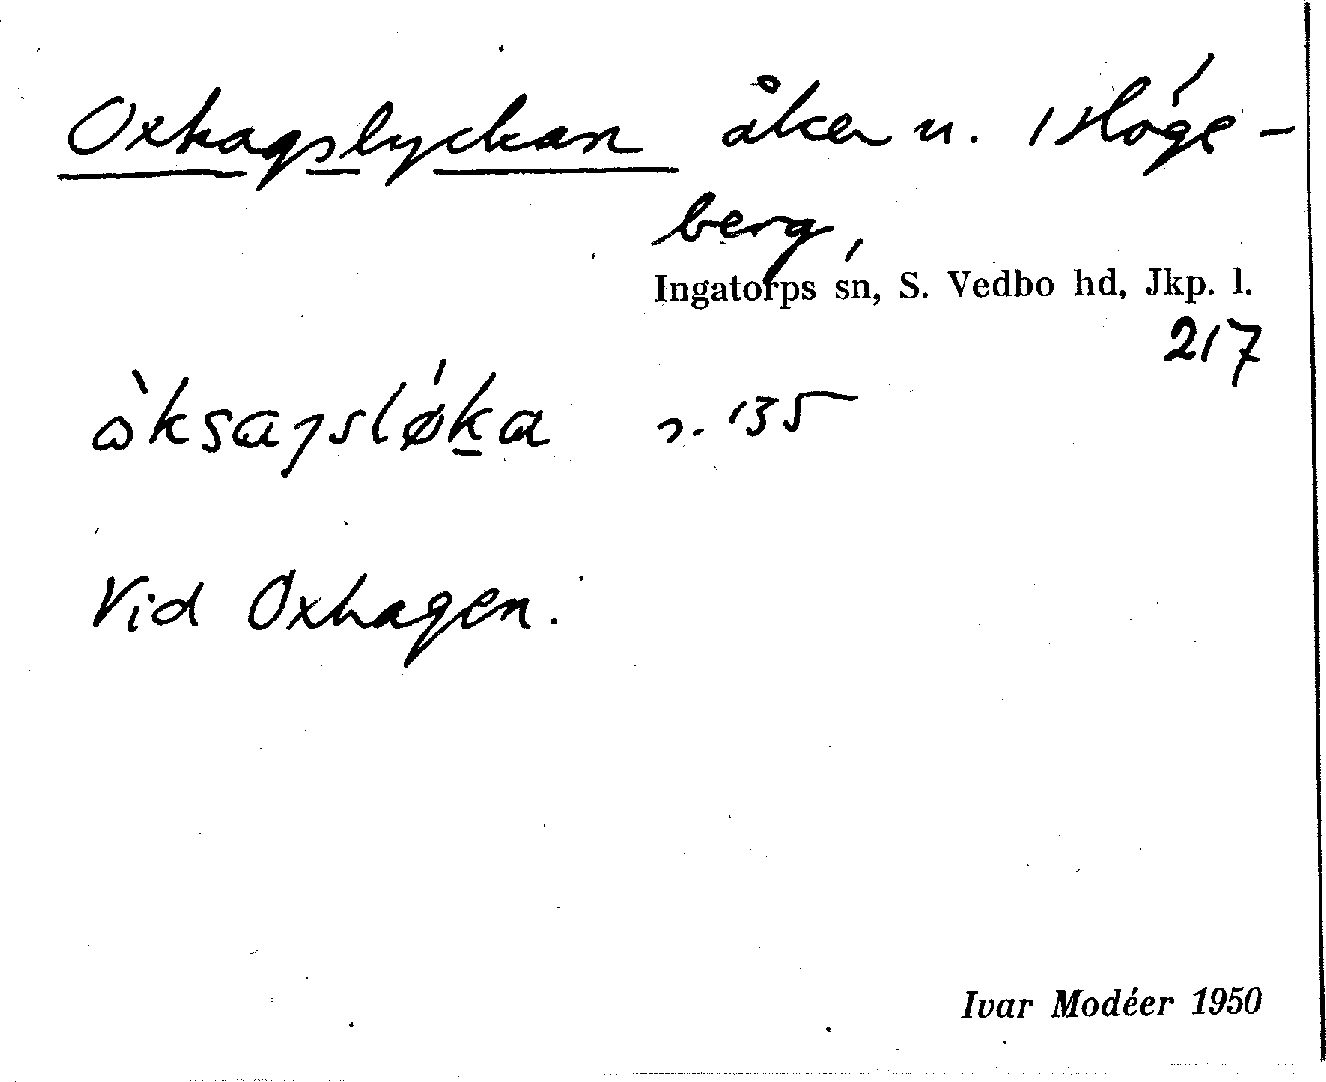 Oxhagslyckan åker u. Höge-
berg,
Ingatorps sn, S. Vedbo hd, Jkp. l.
217
s. 135
Vid Oxhagen.
Ivar Modéer 1950